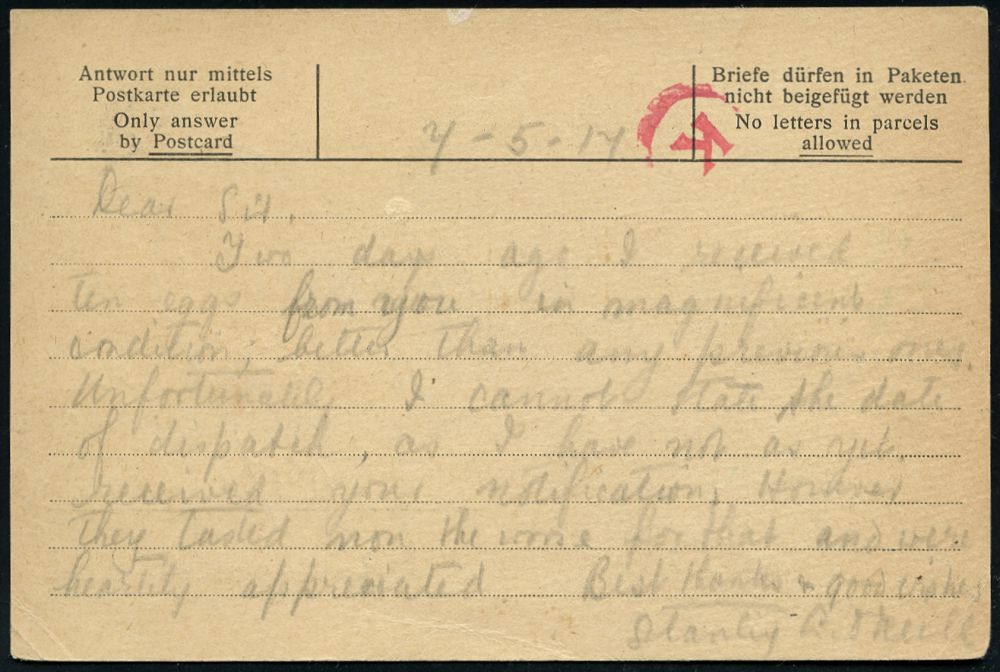 Antwort nur mittels
Postkarte erlaubt
Only answer
by Postcard
7-5-17
Briefe dürfen in Paketen
nicht beigefügt werden
No letters in parcels
allowed
Dear Sir,
Two days ago I received
ten eggs from you in magnificent
condition; better than any previous ones.
Unfortunately I cannot state the date
of dispatch, as I have not as yet
received your notification, However
they tasted non the worse for that and were
heartily appreciated. Best thanks & good wishes
Stanley